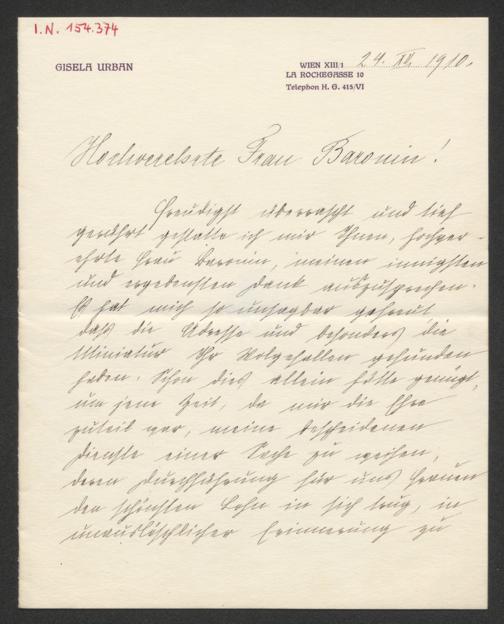 I.N. 154.374
GISELA URBAN
WIEN XIII/1 24. XII. 1910.
LA ROCHEGASSE 10
Telephon H. G. 415/VI
Hochverehrte Frau Baronin!
Freudigst überrascht und tief
gerührt gestatte ich mir Ihnen, hochver-
ehrte Frau Baronin, meinen innigsten
und ergebensten Dank auszusprechen.
Es hat mich so unsagbar gefreut,
daß die Adresse und besonders die
Miniatur Ihr Wolgefallen gefunden
haben. Schon dies allein hätte genügt,
um jene Zeit, da mir die Ehre
zuteil war, meine bescheidenen
Dienste einer Sache zu weihen,
deren Durchführung für uns Frauen
den schönsten Lohn in sich trug, in
unauslöschlicher Erinnerung zu